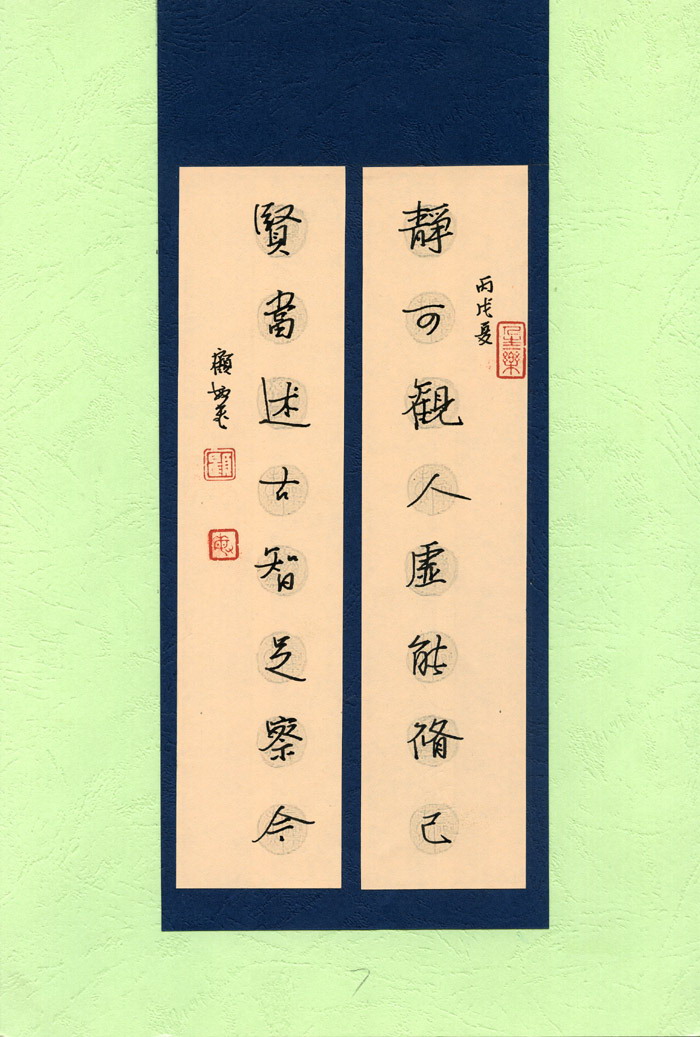 丙戌夏
靜可觀人虛能脩己
賢當述古智足察今
顧